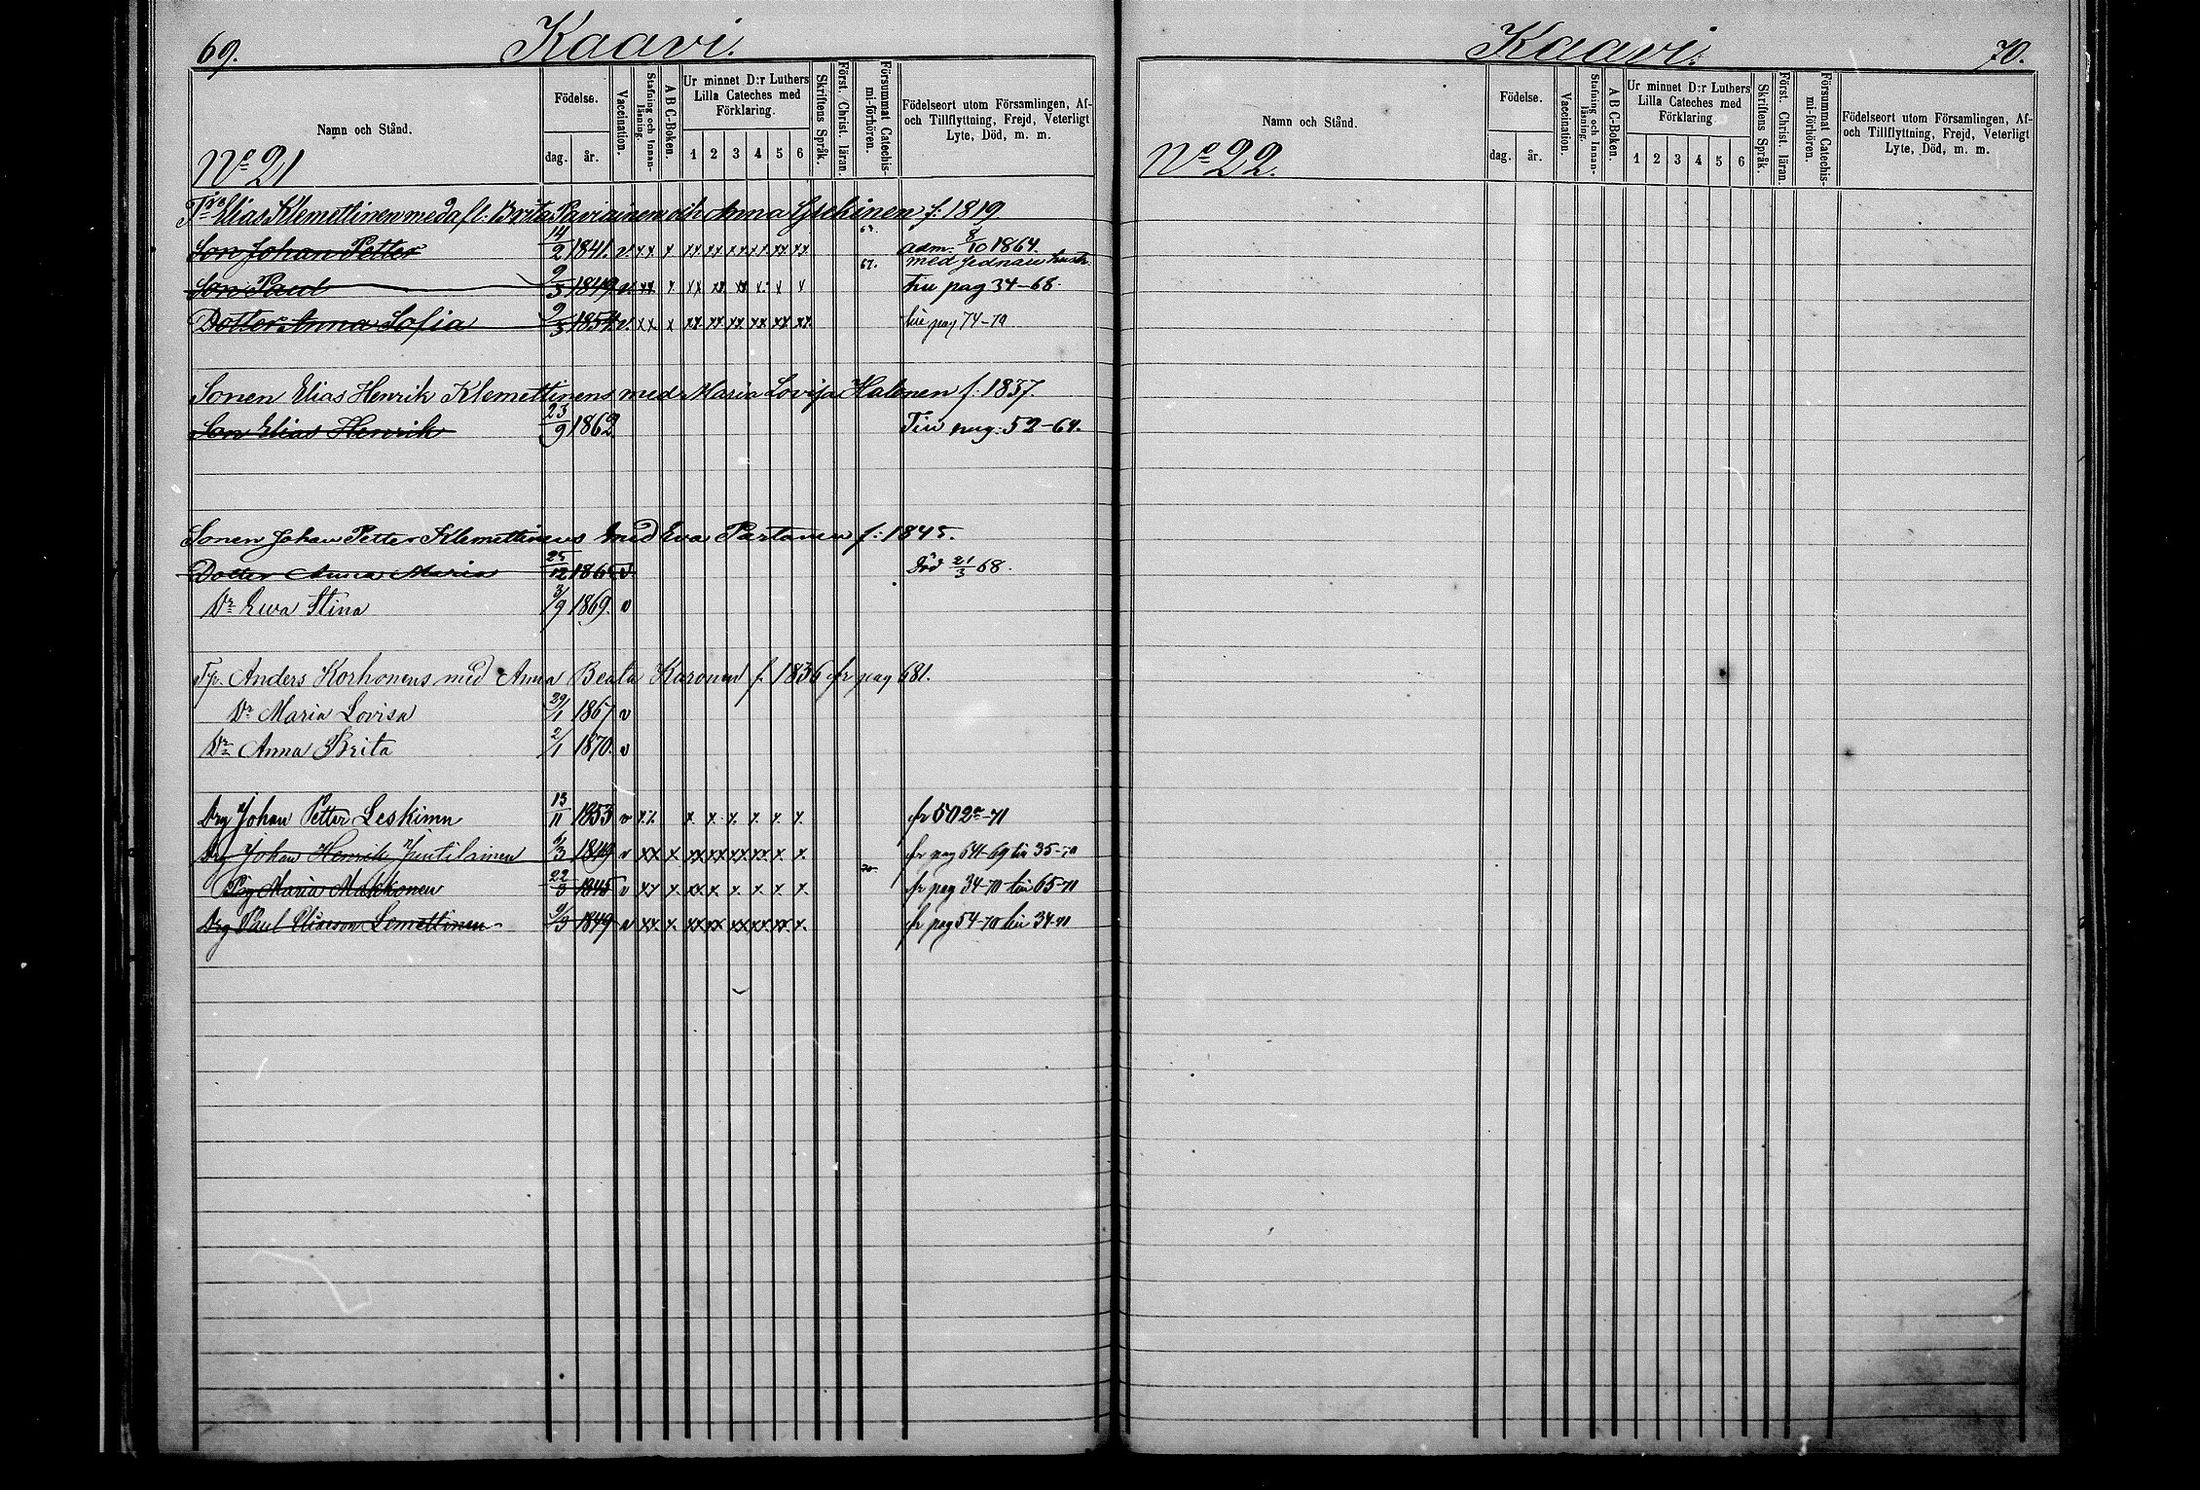 69. Kaavi.
Namn och Stånd.
Födelse.
dag. år.
Vaccination.
Stafning och Innanläsning.
A B C-Boken.
Ur minnet D:r Luthers Lilla Cateches med Förklaring.
1 2 3 4 5 6
Skriftens Språk.
Först. Christ. läran.
Försummat Catechismi-förhören.
Födelseort utom Församlingen, Af- och Tillflyttning, Frejd, Veterligt Lyte, Död, m. m.
No 21
Elias Klemettinen med afl: Brita Paviainen och Anna f: 1819
Son Johan Petter 14/2 1841. v. xx x xx xx xx xx xx xx 67. adm. 8/10 1864.
Son Paul 9/3 1849 v. xx x xx xx xx x x x 67. med hustr. till pag 34-68.
Dotter Anna Sofia 9/3 1854 v. xx x xx xx xx xx xx xx till pag 74-70
Sonen Elias Henrik Klemettinens med Maria Lovisa Halonen f. 1837.
Son Elias Henrik 23/9 1862 Till pag: 52-64.
Sonen Johan Petter Klemettinens med Eva Partanen f: 1845.
Dotter Anna Maria 25/12 1865 v Död 21/3 68.
Dr Ewa Stina 3/9 1869. v
Anders Korhonens med Anna Beata Karonen f. 1836 fr pag 681.
Dr Maria Lovisa 29/1 1867 v
Dr Anna Brita 2/1 1870. v
Drg Johan Petter Leskinen 13/11 1853 v xx x x x x x x fr 502a-71
Drg Johan Henrik Juutilainen 6/3 1849 v xx x xx xx xx xx x x fr pag 64-69 till 35-70
Pig Maria Makkonen 22/3 1845 v xx x xx x x x x x 70 fr pag 34-70 till 65-71
Drg Paul Eliasson Lemettinen 9/3 1849 v xx x xx xx xx xx xx x fr pag 54-70 till 34-71
Kaavi. 70.
Namn och Stånd.
Födelse.
dag. år.
Vaccination.
Stafning och Innanläsning.
A B C-Boken.
Ur minnet D:r Luthers Lilla Cateches med Förklaring
1 2 3 4 5 6
Skriftens Språk.
Först. Christ. läran.
Försummat Catechismi-förhören.
Födelseort utom Församlingen, Af- och Tillflyttning, Frejd, Veterligt Lyte, Död, m. m.
No 22.